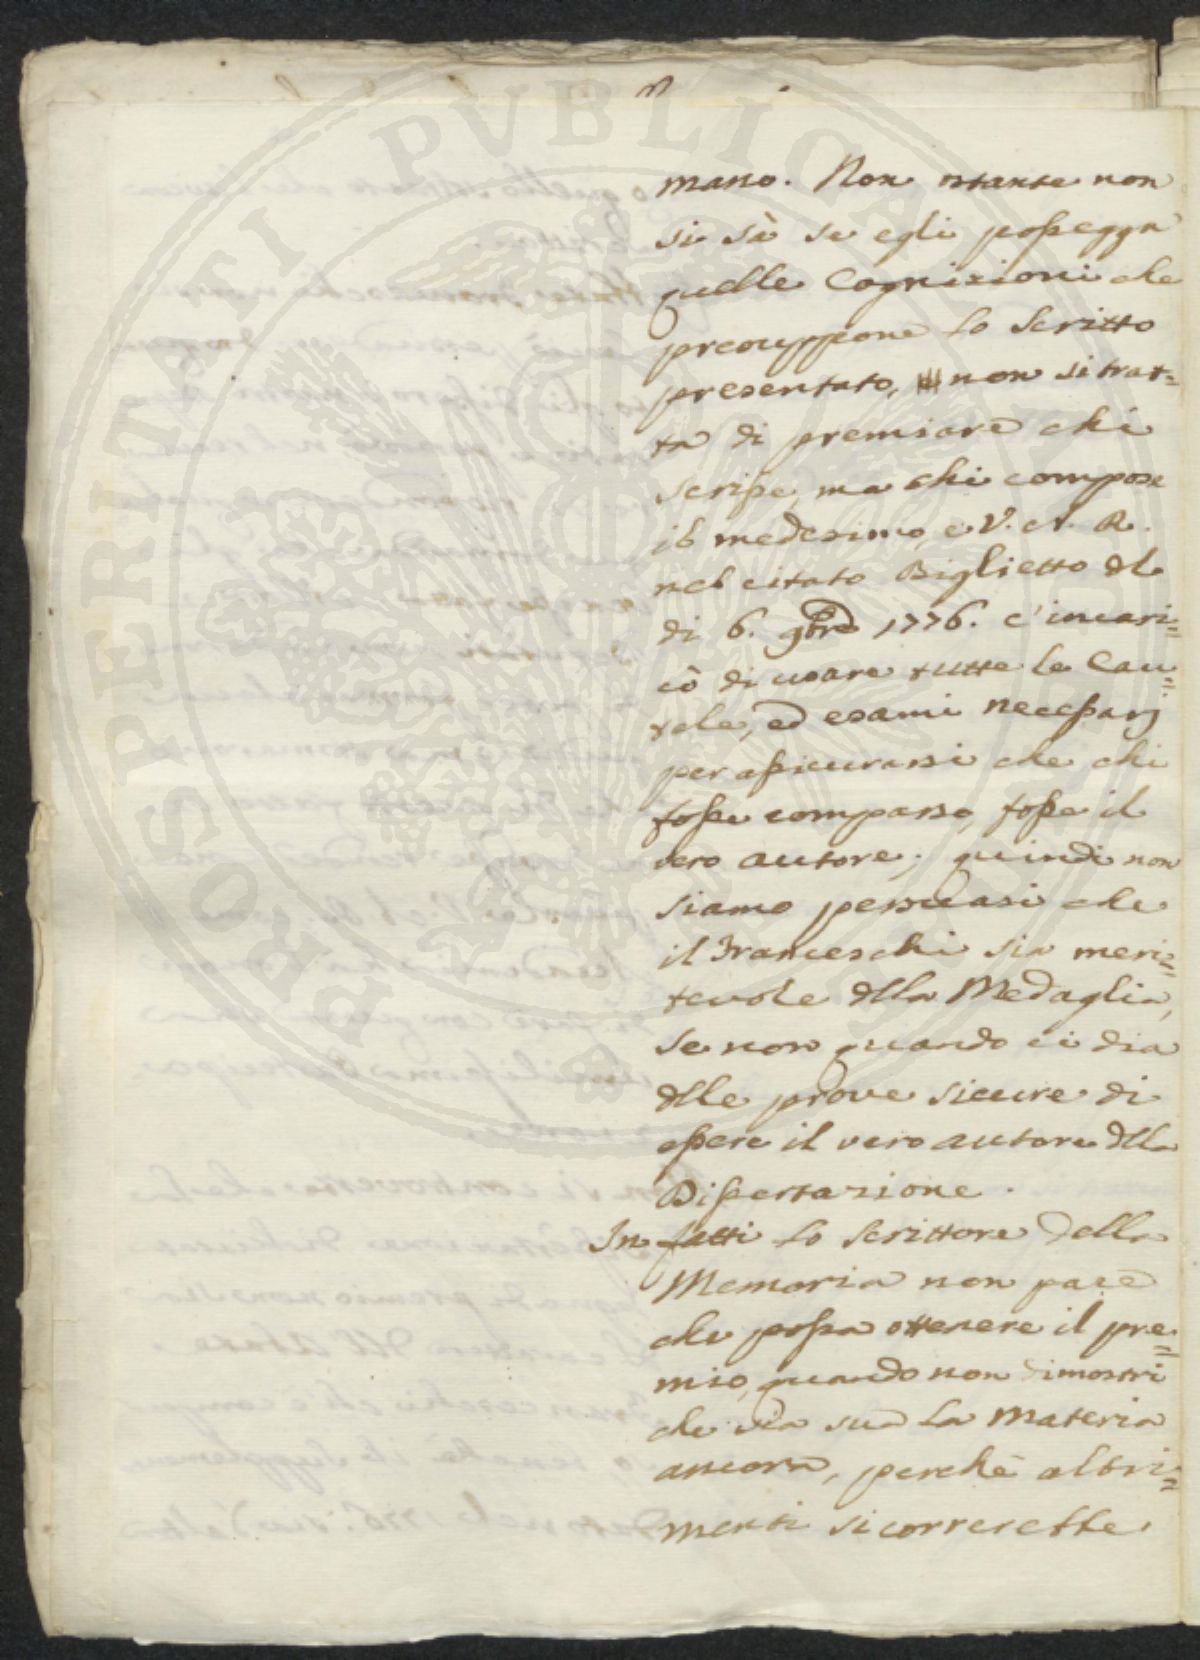 mano. Non ostante non
si sà se egli possegga
quelle Cognizioni che
presuppone lo Scritto
presentato, non si trat=
ta di premiare chi
scrisse, ma chi compose
il medesimo, e V. A. R.
nel citato Biglietto del
di 6. 9bre 1776. c'incari=
cò di usare tutte le Cau=
tele, ed esami necessarj
per assicurarsi che chi
fosse comparso, fosse il
vero autore; quindi non
siamo persuasi che
il Franceschi sia meri=
tevole dlla Medaglia,
se non quando ci dia
dlle prove sicure di
essere il vero autore dlla
Dissertazione.
In fatti lo scrittore della
Memoria non pare
che possa ottenere il pre=
mio, quando non dimostri
che sia sua la materia
ancora, perchè altri=
menti si correrebbe
PROSPERITATI PUBLICAE